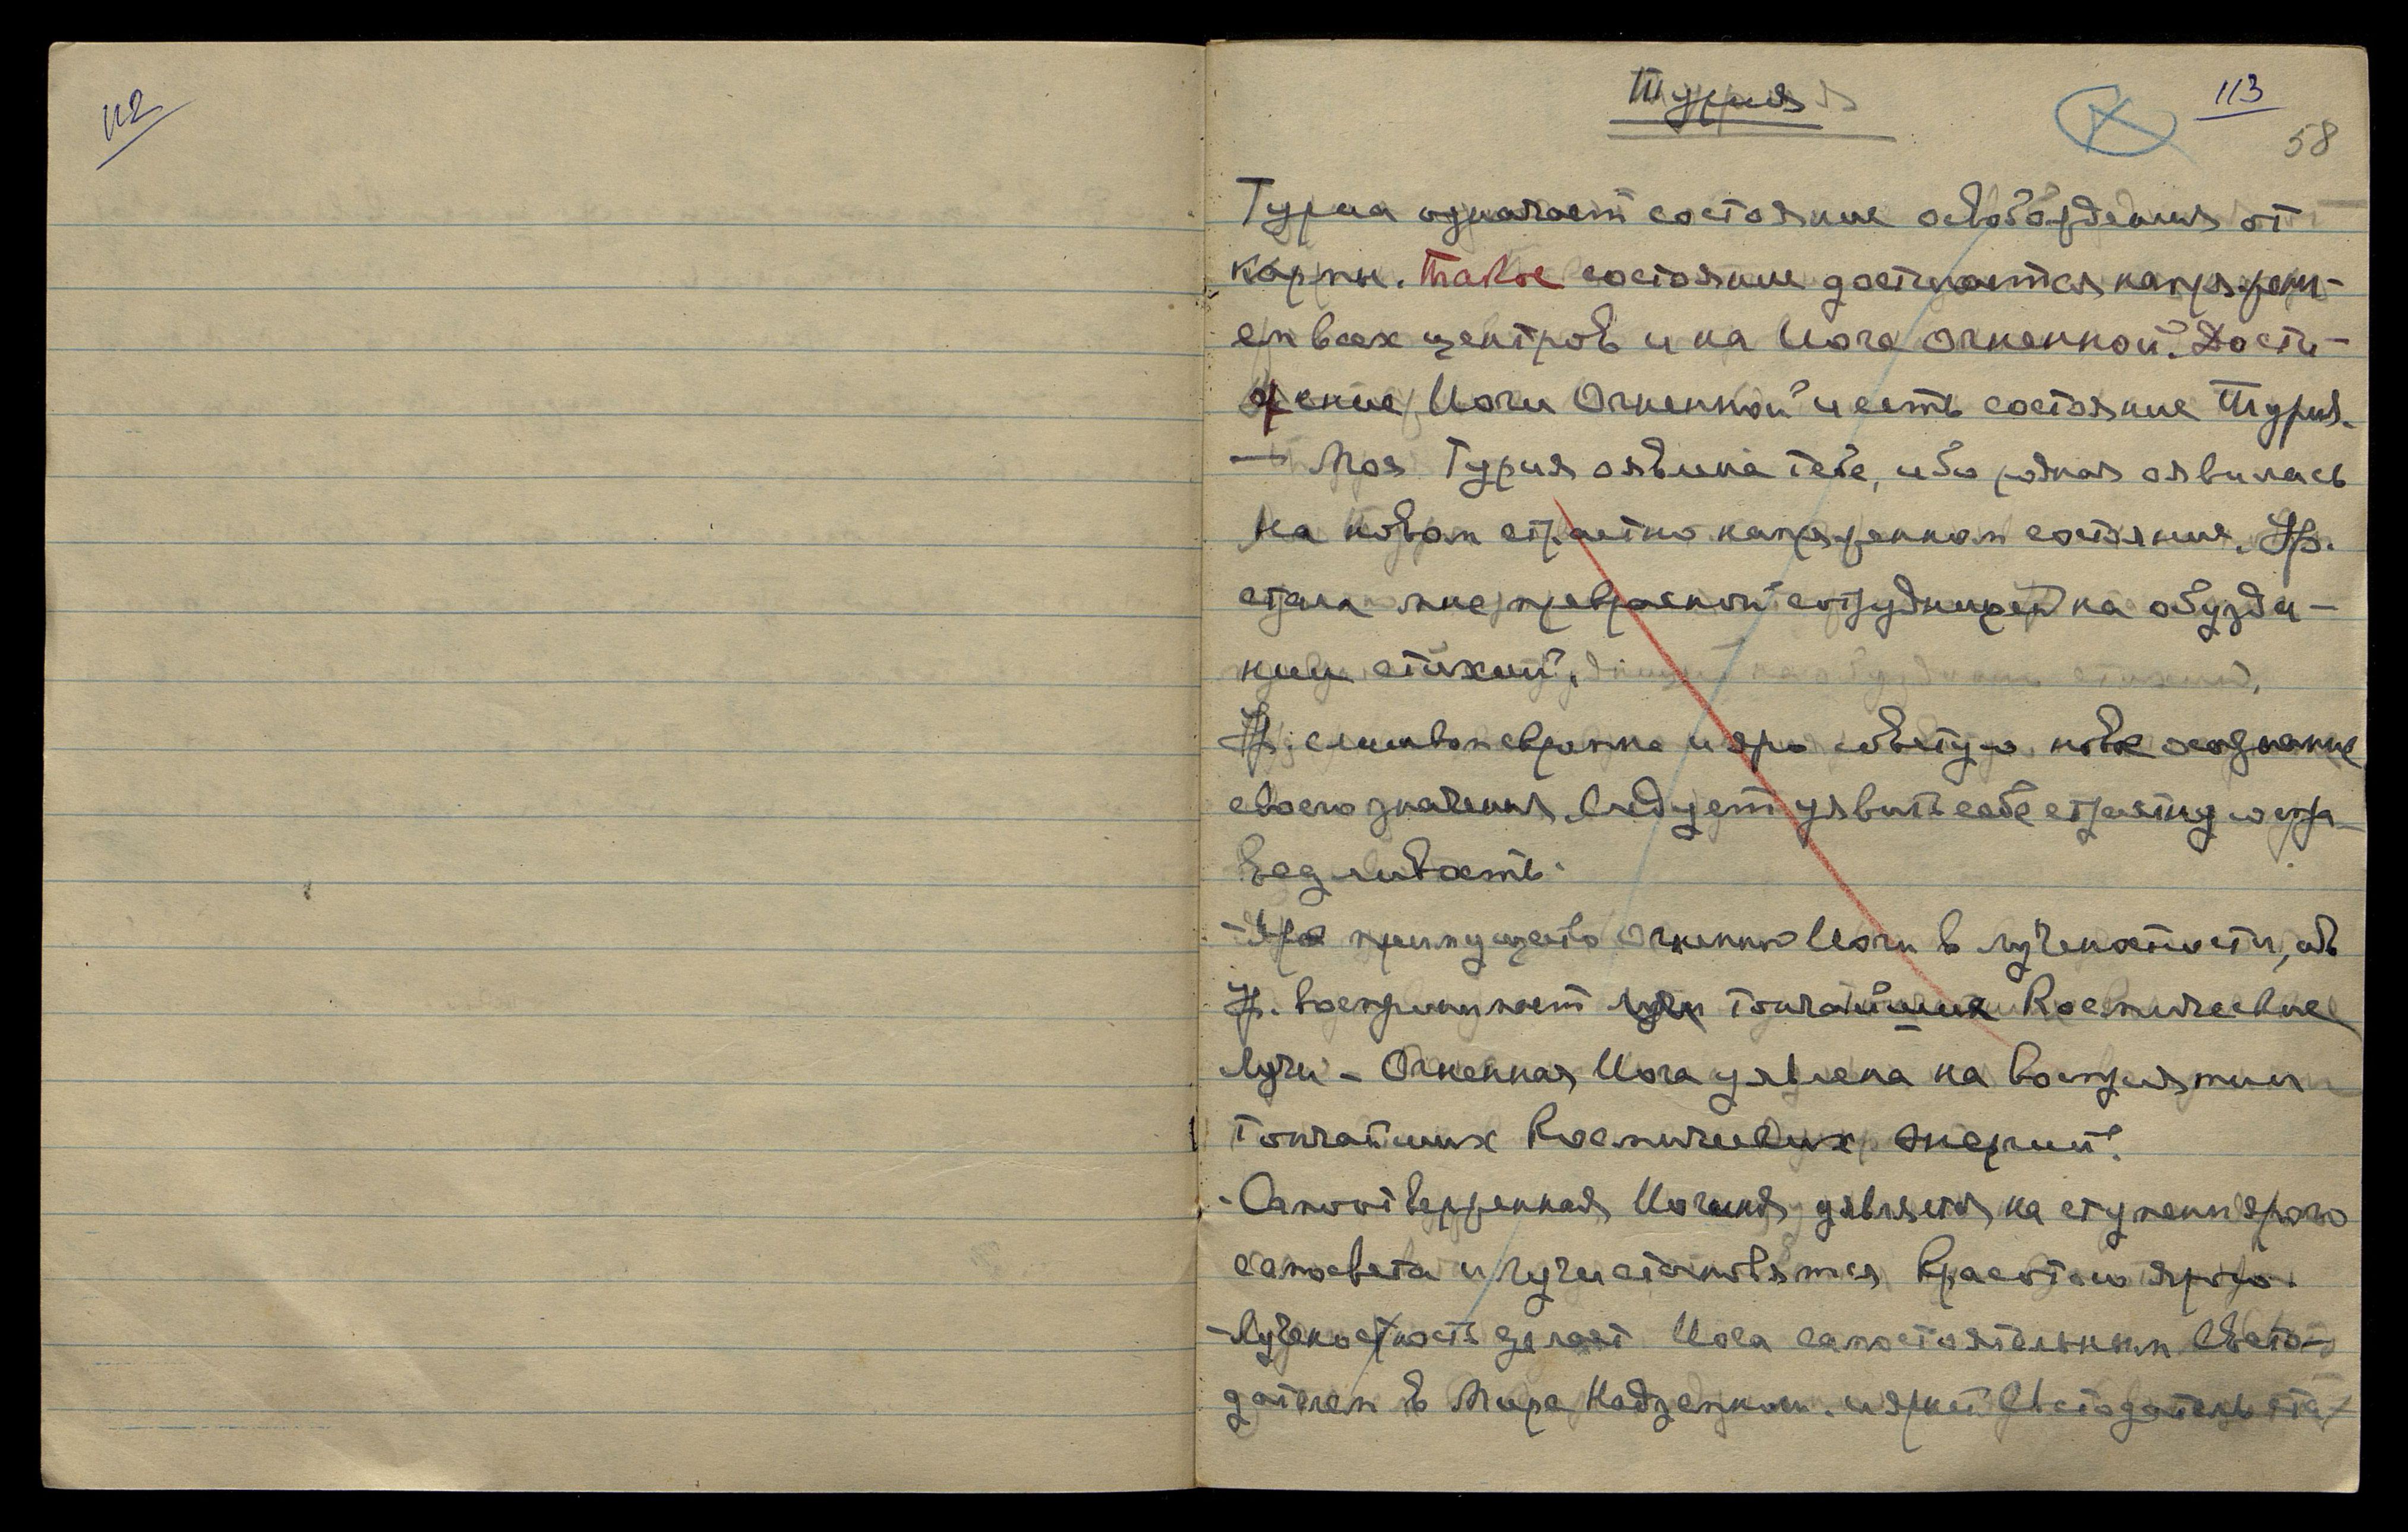 112
Турия
113
58
Турия означает состояние освобождения от
кармы. Такое состояние достигается напряжени-
ем всех центров и на Йоге Огненной. Дости-
жение Йоги Огненной и есть состояние Турия.
— Моя Турия оявлена тебе, ибо родная оявилась
на новом страстно напряженном состоянии. Ур.
стала мне прекрасной сотрудницей на обузда-
нии стихий.
Ур. слишком скромна и яро советую новое осознание
своего значения. Следует уявить себе страстную спра-
ведливость.
- Яро преимущество Огненной Йоги в лученостности, ибо
Ур. воспринимает тончайшие Космические
Лучи – Огненная Йога уявлена на восприятии
тончайших Космических энергий.
- Самоотверженная Йогиня уявляется на ступени ярого
самосвета и лучи становятся красотою ярою.
- Лученостность делает Йога самостоятельным Свето-
дателем в Мире Надземном. и яркий Светодатель ста-